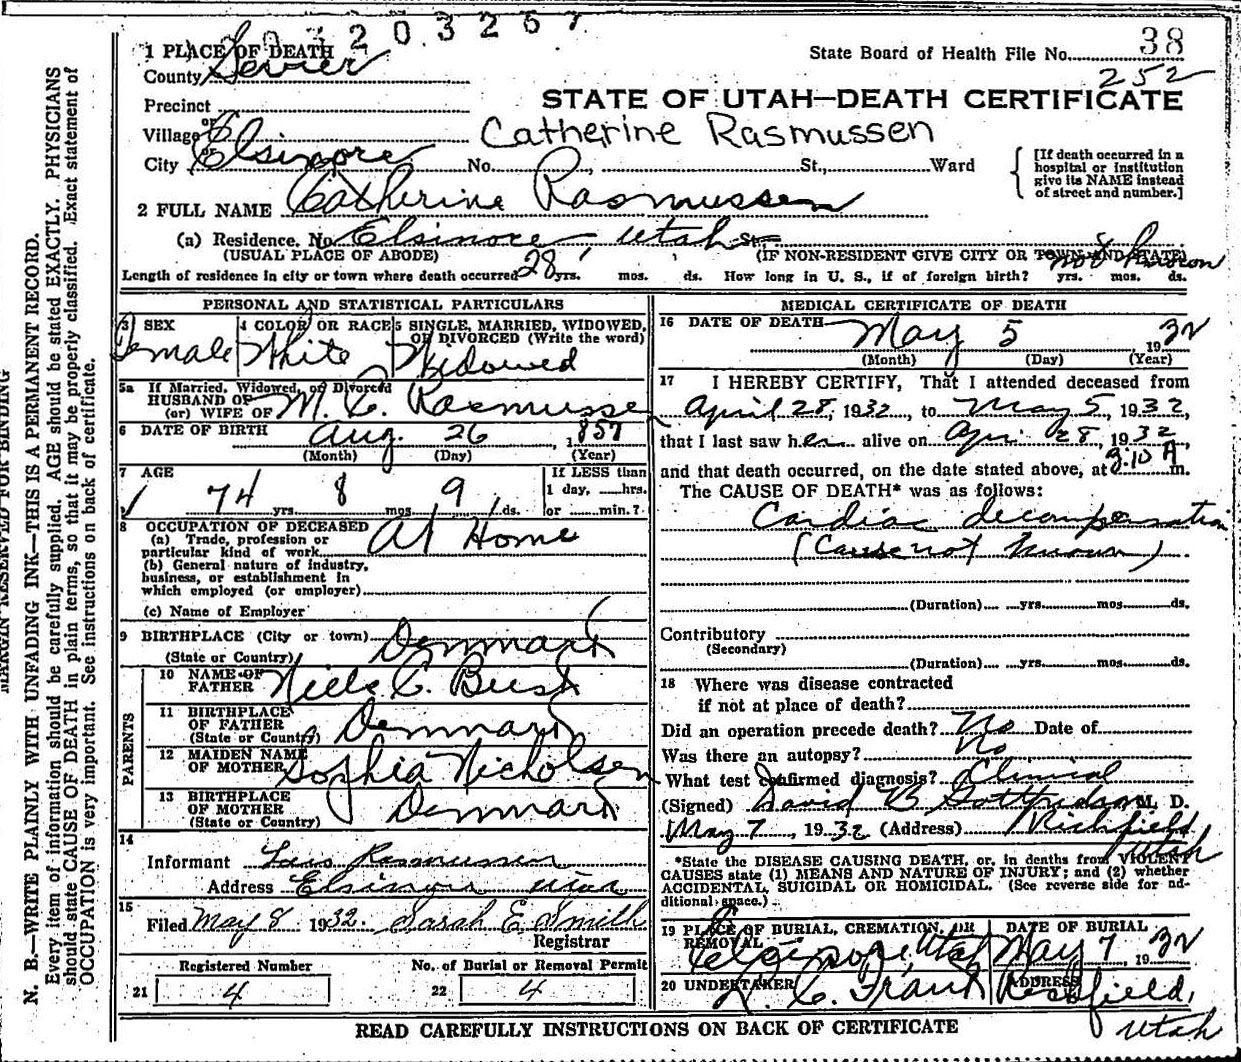 3203257
1 PLACE OF DEATH
State Board of Health File No. 38
County Sevier
252
Precinct
STATE OF UTAH—DEATH CERTIFICATE
or
Village
Catherine Rasmussen
or
City Elsinore No. St., Ward
[If death occurred in a hospital or institution give its NAME instead of street and number.]
2 FULL NAME Catherine Rasmussen
(a) Residence. No. Elsinore, Utah St.
(USUAL PLACE OF ABODE) (IF NON-RESIDENT GIVE CITY OR TOWN AND STATE)
Length of residence in city or town where death occurred 28 yrs. mos. ds. How long in U. S., if of foreign birth? yrs. mos. ds.
PERSONAL AND STATISTICAL PARTICULARS
3 SEX Female
4 COLOR OR RACE White
5 SINGLE, MARRIED, WIDOWED, OR DIVORCED (Write the word) Widowed
5a If Married, Widowed, or Divorced
HUSBAND OF
(or) WIFE OF M. C. Rasmussen
6 DATE OF BIRTH Aug. 26, 1857
(Month) (Day) (Year)
7 AGE 74 yrs. 8 mos. 9 ds.
If LESS than
1 day, hrs.
or min.?
8 OCCUPATION OF DECEASED
(a) Trade, profession or
particular kind of work At Home
(b) General nature of industry,
business, or establishment in
which employed (or employer)
(c) Name of Employer
9 BIRTHPLACE (City or town)
(State or Country) Denmark
PARENTS
10 NAME OF
FATHER Niels C.
11 BIRTHPLACE
OF FATHER
(State or Country) Denmark
12 MAIDEN NAME
OF MOTHER Sophia Nicholsen
13 BIRTHPLACE
OF MOTHER
(State or Country) Denmark
14
Informant Rasmussen
Address Elsinore Utah
15
Filed May 8 1932. Sarah E Smith
Registrar
Registered Number No. of Burial or Removal Permit
21 4 22 4
MEDICAL CERTIFICATE OF DEATH
16 DATE OF DEATH May 5 1932
(Month) (Day) (Year)
17 I HEREBY CERTIFY, That I attended deceased from
April 28, 1932, to May 5, 1932,
that I last saw her alive on Apr. 28, 1932,
and that death occurred, on the date stated above, at 3:10 A m.
The CAUSE OF DEATH* was as follows:
Cardiac decompensation
(Cause not known)
(Duration) yrs. mos. ds.
Contributory
(Secondary)
(Duration) yrs. mos. ds.
18 Where was disease contracted
if not at place of death?
Did an operation precede death? No Date of
Was there an autopsy? No
What test confirmed diagnosis? Clinical
(Signed) David B Gottfredson M. D.
May 7, 1932 (Address) Richfield Utah
*State the DISEASE CAUSING DEATH, or, in deaths from VIOLENT
CAUSES state (1) MEANS AND NATURE OF INJURY; and (2) whether
ACCIDENTAL, SUICIDAL OR HOMICIDAL. (See reverse side for ad-
ditional space.)
19 PLACE OF BURIAL, CREMATION, OR REMOVAL Elsinore, Utah
DATE OF BURIAL May 7, 1932
20 UNDERTAKER L. C. Frank
ADDRESS Richfield, Utah
READ CAREFULLY INSTRUCTIONS ON BACK OF CERTIFICATE
MARGIN RESERVED FOR BINDING
N. B.—WRITE PLAINLY WITH UNFADING INK—THIS IS A PERMANENT RECORD.
Every item of information should be carefully supplied. AGE should be stated EXACTLY. PHYSICIANS
should state CAUSE OF DEATH in plain terms, so that it may be properly classified. Exact statement of
OCCUPATION is very important. See instructions on back of certificate.